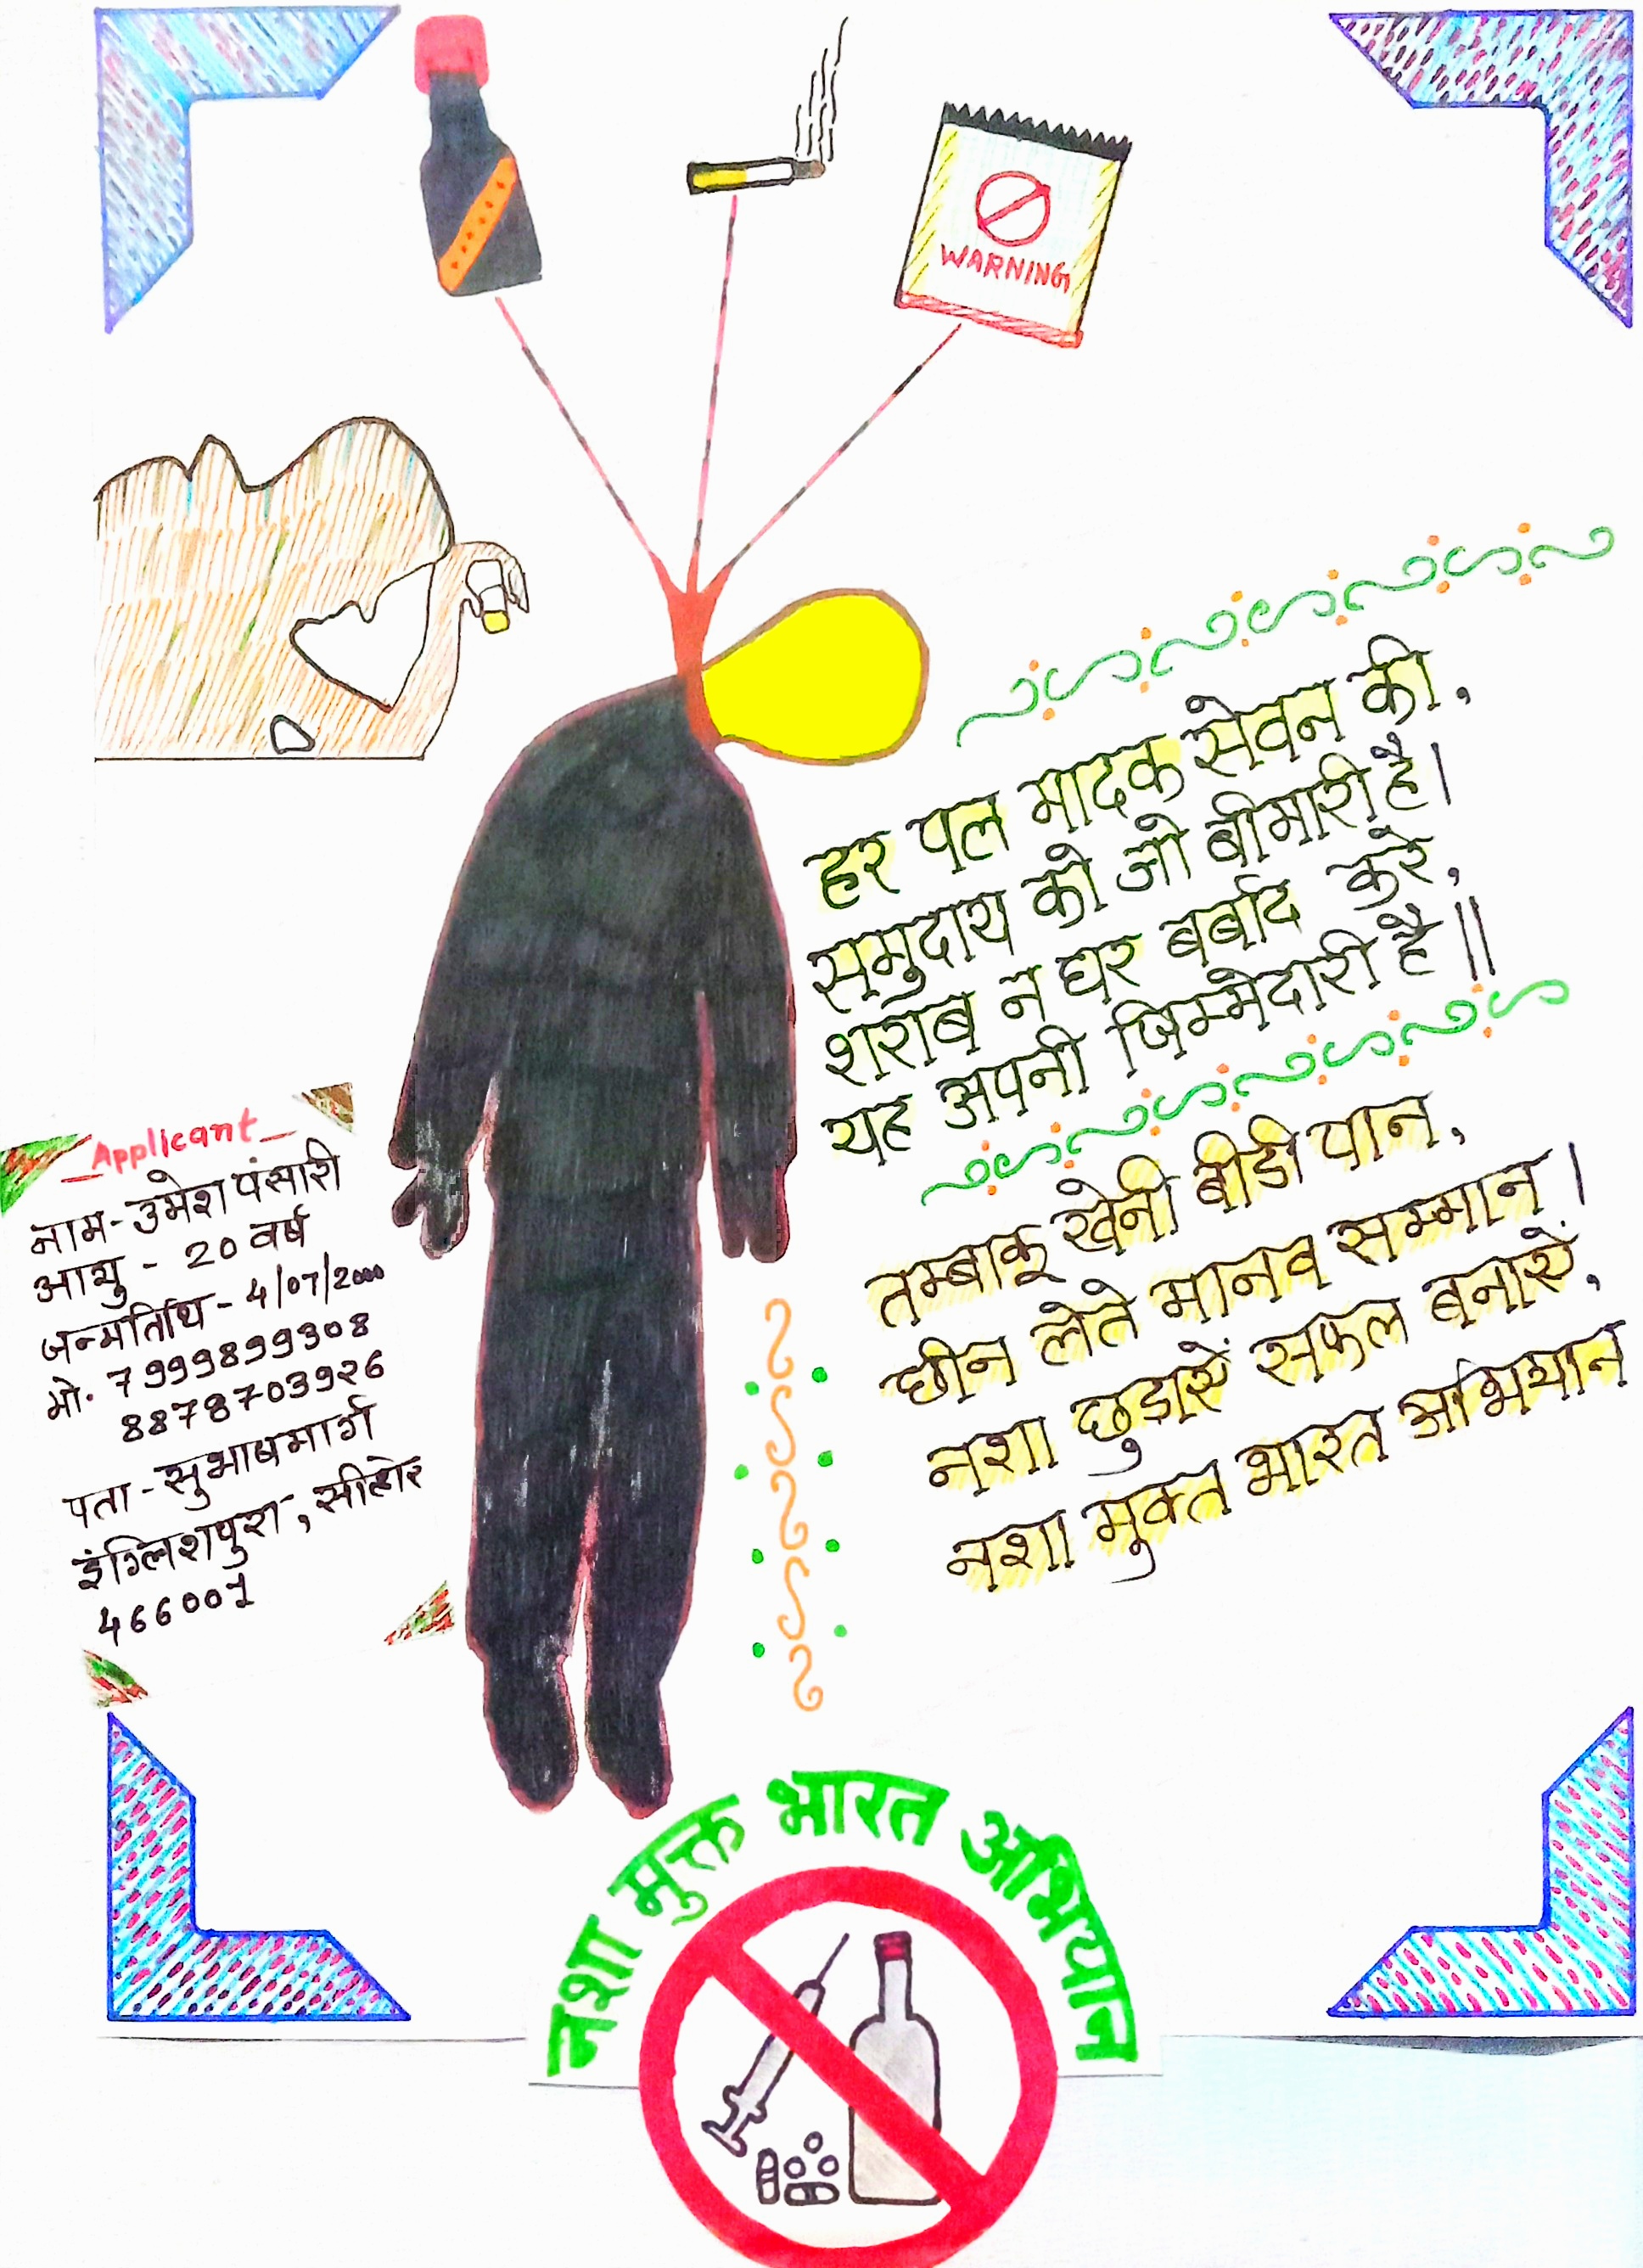 WARNING
हर पल मादक सेवन की,
समुदाय को जो बीमारी है।
शराब न घर बर्बाद करे,
यह अपनी जिम्मेदारी है॥
तम्बाकू खेनी बीडी पान,
छीन लेते मानव सम्मान।
नशा छुडायें सफल बनायें,
नशा मुक्त भारत अभियान
Applicant
नाम-उमेश पंसारी
आयु - 20 वर्ष
जन्मतिथि - 4/07/2000
मो. 7999899308
8878703926
पता-सुभाषमार्ग
इंग्लिशपुरा, सीहोर
466001
नशा मुक्त भारत अभियान